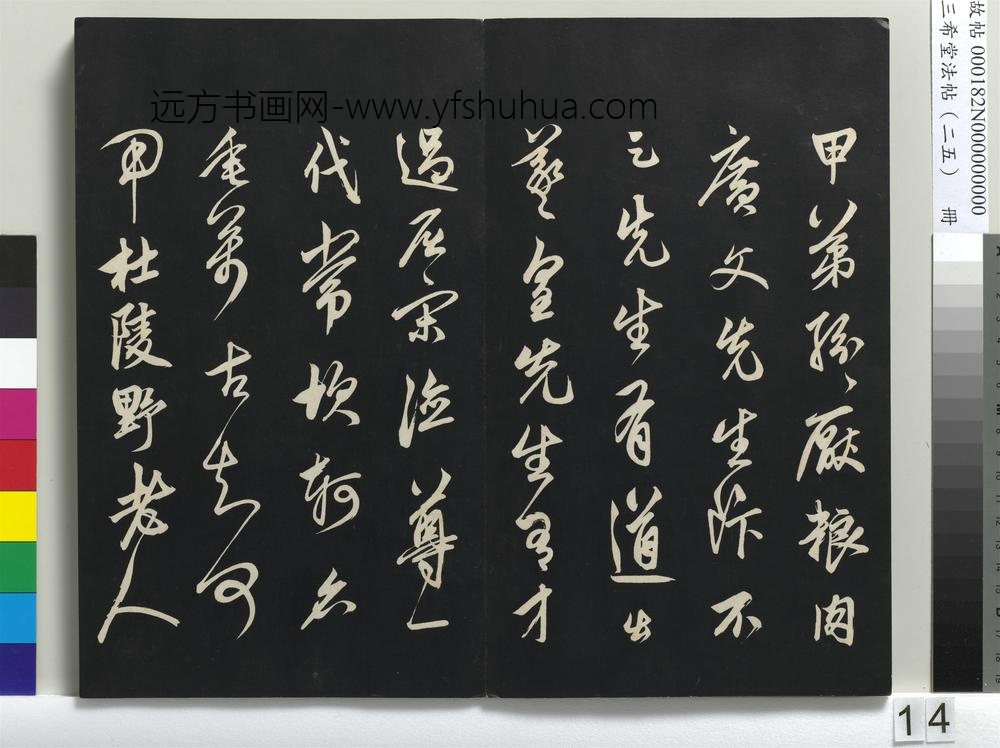 甲第紛〻厭粮肉
廣文先生飯不
足先生有道出
羲皇先生有才
過屈宋德尊一
代常坎軻名
垂萬古知何
用杜陵野老人
远方书画网-www.yfshuhua.com
故帖 000182N000000000
三希堂法帖(二五) 冊
14